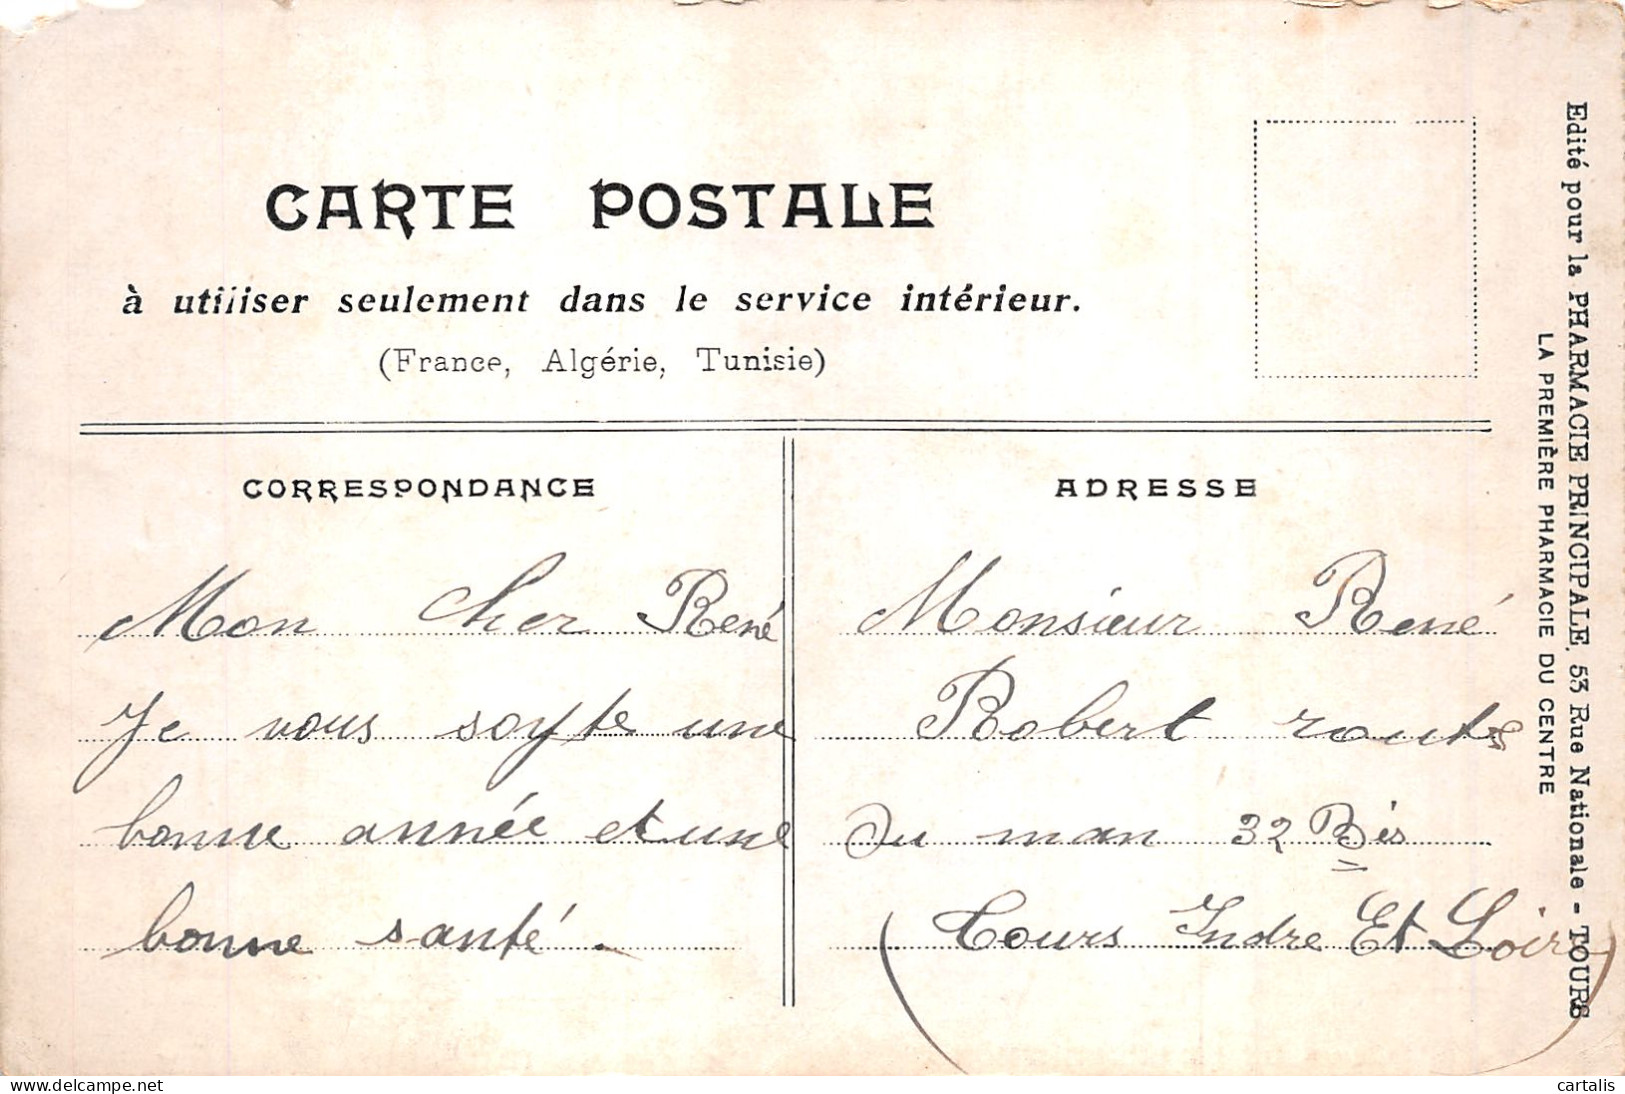 CARTE POSTALE
à utiliser seulement dans le service intérieur.
(France, Algérie, Tunisie)
CORRESPONDANCE
Mon cher René
Je vous soyte une
bonne année et une
bonne santé .
ADRESSE
Monsieur René
Robert route
Du man 32 Bis
(Tours Indre Et Loire)
Edité pour la PHARMACIE PRINCIPALE, 53 Rue Nationale - TOURS
LA PREMIÈRE PHARMACIE DU CENTRE
delcampe.net
cartalis